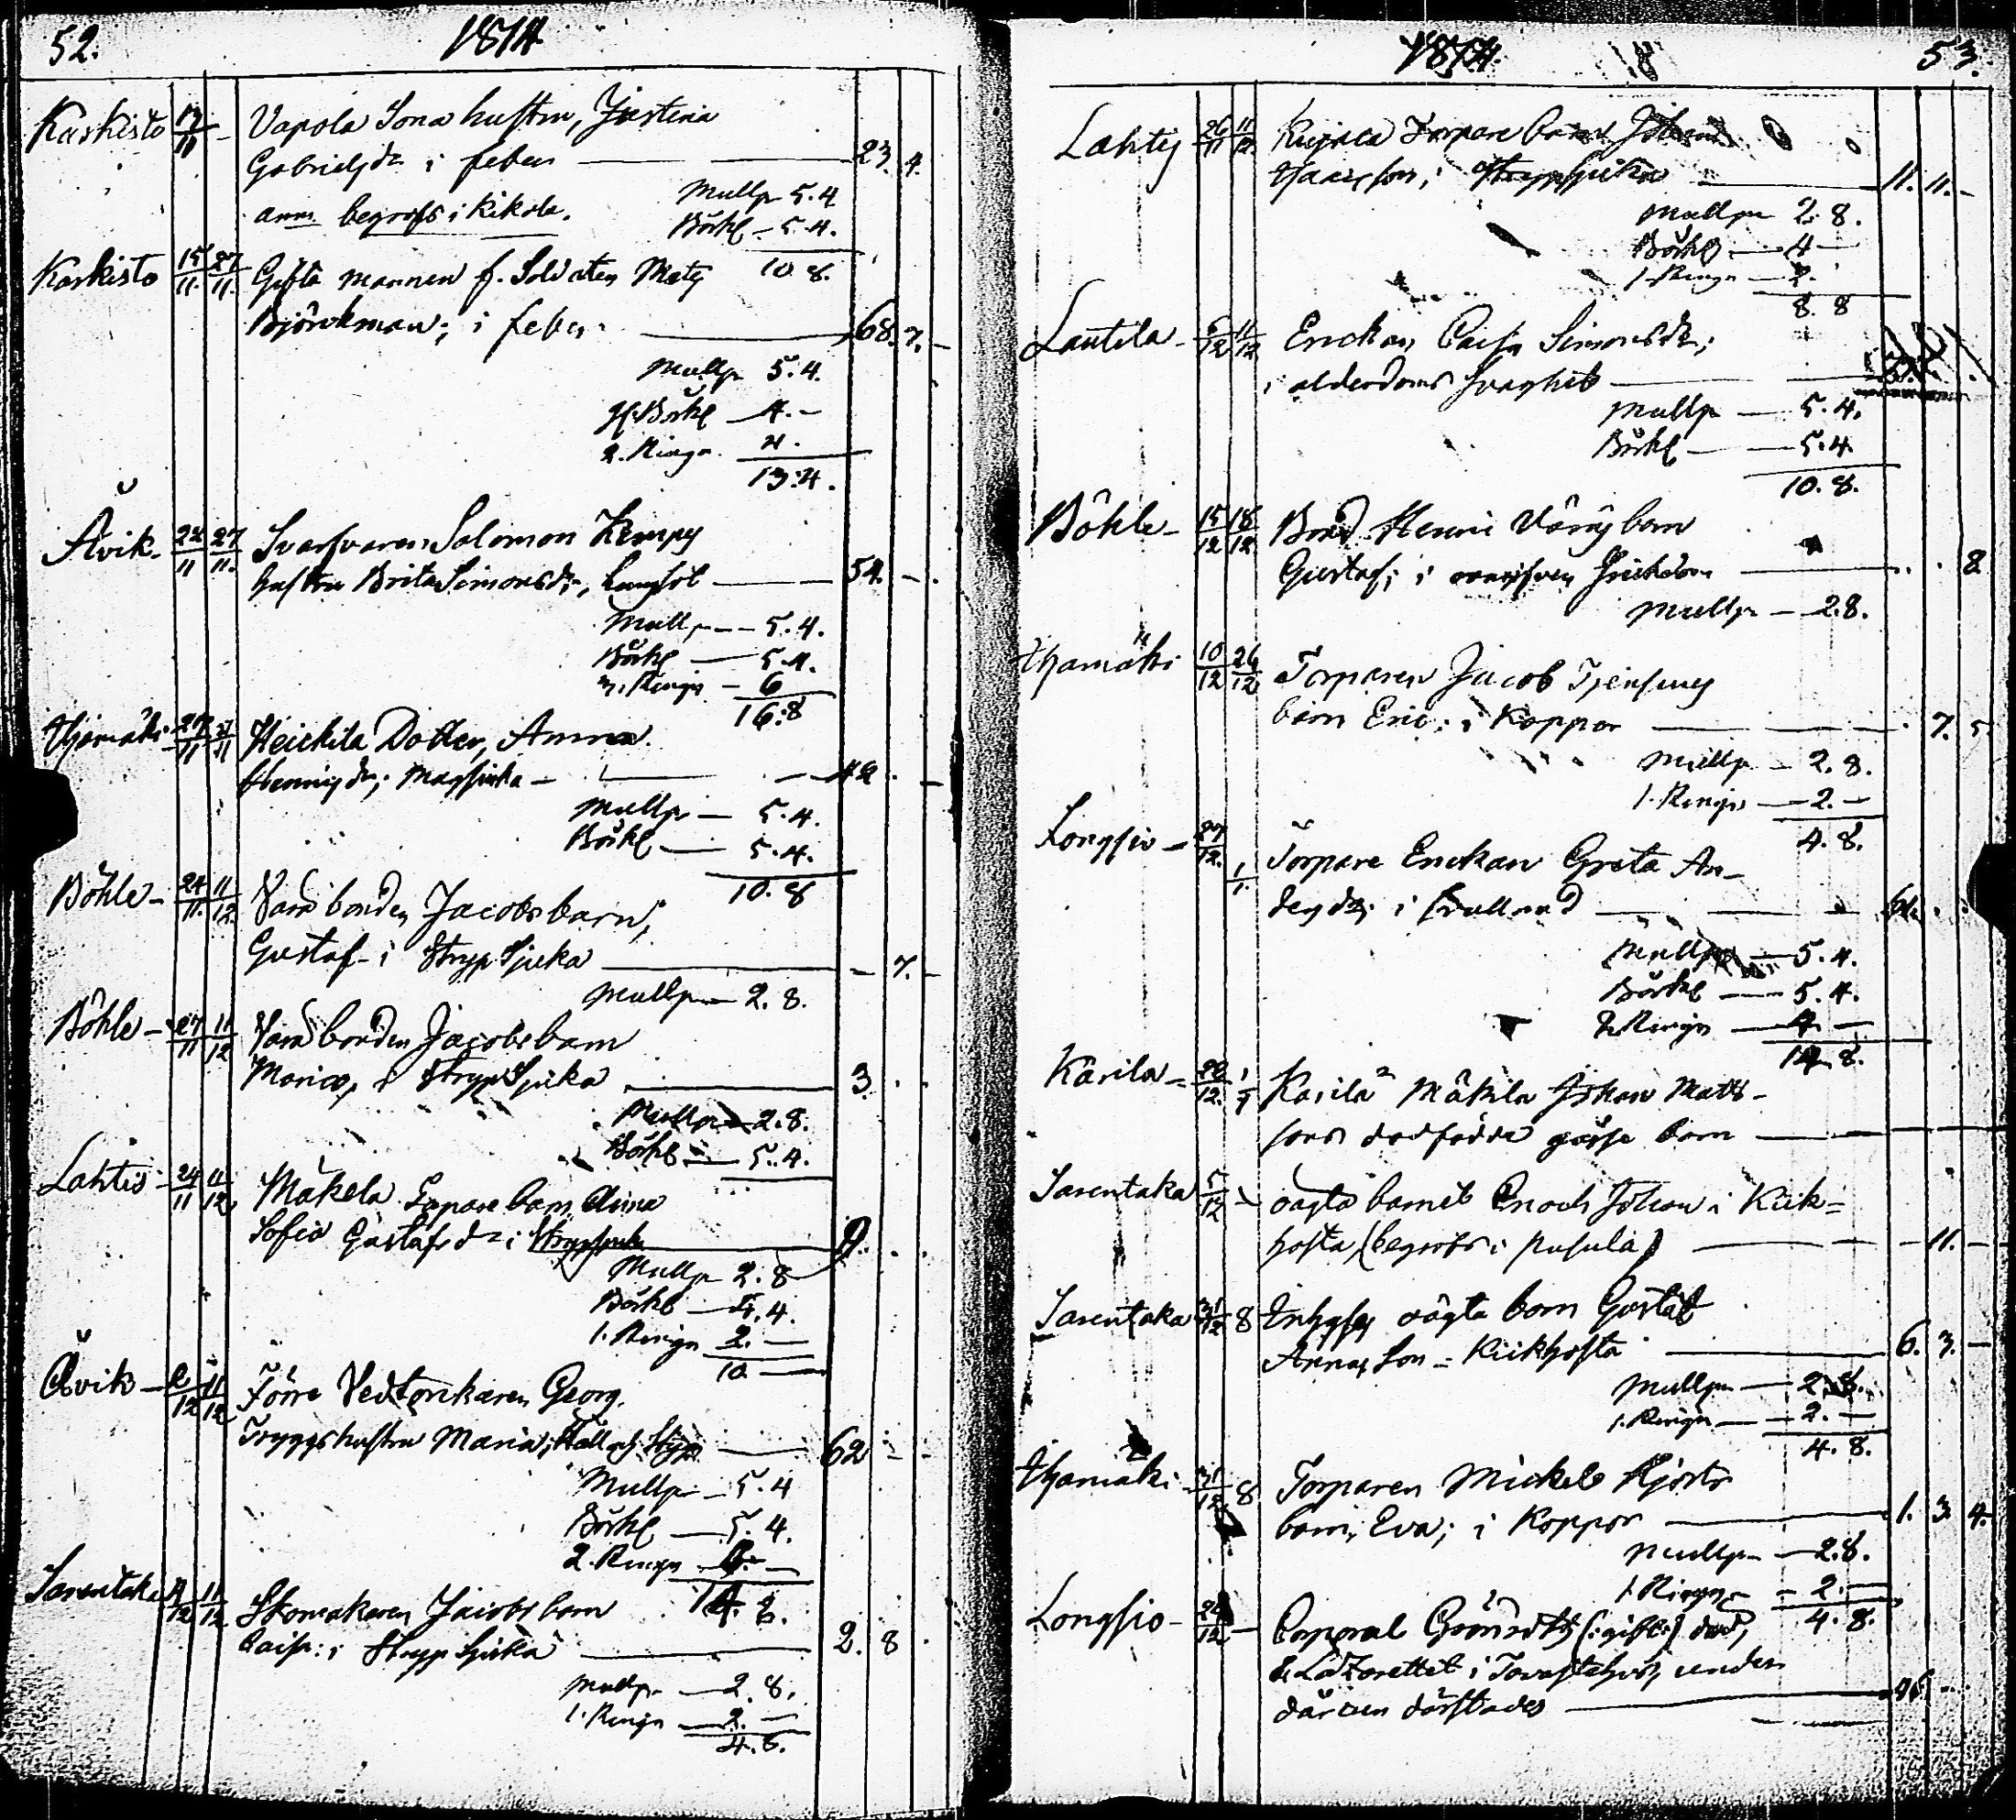 52. 1814
Karkisto 17/11 - Vapola Jona hustru, Justina
Gabrielsdr i feber 23. 4.
anm begrofs i Kikola. Mullp 5.4
Bårkl 5.4.
10 8.
Karkisto 15/11. 27/11. Gifta mannen f. Soldaten Mats
Björkman; i feber 68. 7. -
Mullp 5.4.
H. Bårkl 4. -
2. Ringn. 4.
13.4.
Åvik 22/11 27/11. Svarfvaren Salomon Kempes
hustru Brita Simonsdr, Lungsot 54. - .
Mullp 5.4.
Bårkl 5.4.
3. Ringn 6
16.8
27/11 Heickila Dotter, Anna
Henrigsdr; Magsiuka 42 . -
Mullp 5.4.
Bårkl 5.4.
10.8
Böhle - 24/11. 11/12 bonden Jacobs barn,
Gustaf - i Stryp Sjuka - 7. -
Mullp 2.8.
Böhle - 27/11 11/12 bonden Jacobs barn
Maria, i Stryp Sjuka 3. . .
Mullp 2.8.
Bårkl 5.4.
Lahtis - 24/11 11/12 Mäkelä barn Anna
Sofia Gustafsdr i Strypsjuka 9. .
Mullp 2.8
Bårkl 5.4.
1. Ringn 2. -
10. -
Åvik - 2/12 11/12 Förre Georg
Tryggs hustru Maria; Håll och Styng 62 - -
Mullp 5.4
Bårkl 5.4.
2. Ringn 4. -
14.8.
Sarentaka 4/12 11/12 Skomakaren Jacobs barn
Caisa: i Stryp Sjuka 2. 8 .
Mullp 2.8.
1. Ringn 2. -
4.8.
1814. 53.
Lahtis 26/11 11/12. Torpare barn Johan
i Strypsjuka 11. 11. -
Mullp 2.8.
Bårkl 4 -
1. Ringn 2.
8.8
Lautela - 6/12 11/12 Enckan Caisa Simonsdr;
i alderdoms svaghet
Mullp 5.4.
Bårkl 5.4.
10.8.
Böhle - 15/12 18/12 Bond Henric barn
Gustaf; i 8
Mullp 2.8.
10/12 26/12 Torparen Jacob
barn Eric: i Koppor . 7. 5
Mullp 2.8.
1. Ringn 2. -
4.8.
Longsio - 27/12. 1/1. Torpare Enckan Greta An-
dersdr; i 61. . .
Mullp 5.4.
Bårkl 5.4.
2. Ringn 4 -
14.8.
Kärilä - 28/12. 1/1 Kärilä Mäkilä Johan Matts-
sons dödfödde gosse barn
Sarentaka 5/12 - oägta barnet Enoch Johan i Kik-
hosta (begrofs i Pusula) - 11. -
Sarentaka 31/12 8 oägta barn Gustaf
Annas Son - Kikhosta 6. 3. -
Mullp 2.8.
1. Ringn 2. -
4.8.
31/12 8 Torparen Mickels Hjorts
barn, Eva; i Koppor 1. 3. 4.
Mullp 2.8.
1. Ringn 2. -
4.8.
Longsio - 24/12 - Corporal (: gift:) död,
å Lazarettet i Tavastehus, under
därstädes 46 -